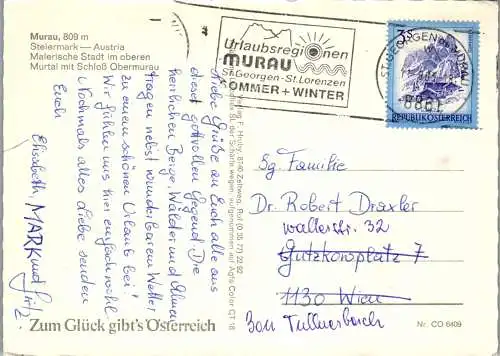 Murau, 809 m
Steiermark — Austria
Malerische Stadt im oberen
Murtal mit Schloß Obermurau
Urlaubsregionen
MURAU
St.Georgen-St.Lorenzen
SOMMER + WINTER
ST.GEORGEN
3S
REPUBLIK ÖSTERREICH
Liebe Grüße an Euch alle aus
dieser gottvollen Gegend. Die
herrlichen Berge, Wälder und Almen
tragen nebst wunderbarem Wetter
zu einem schönen Urlaub bei!
Wir fühlen uns hier einfach wohl
Nochmals alles Liebe senden
Euch
Elisabeth, MARK und Fritz
F. Hruby, 8740 Zeltweg, Ruf (0 35 77) 22 92
aufgenommen auf Agfa Color CT 18
Sg. Familie
Dr. Robert Draxler
wallerstr. 32
Gutzkowplatz 7
1130 Wien
3011 Tullnerbach
Zum Glück gibt's Österreich
Nr. CO 6409